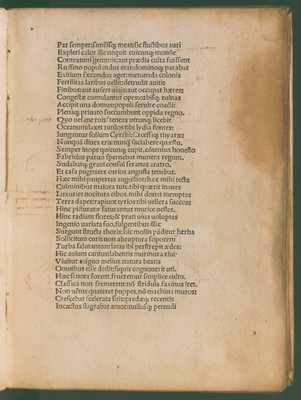 Par semper, similisq; meat: sic fluctibus auri
Expleri calor ille nequit. cuicunq; monile
Contextum gemmis: aut prædia culta fuissent
Ruffino populandus erat: dominoq; parabat
Exitium fæcundus ager: metuenda colonis
Fertilitas laribus pellit: detrudit auitis
Finibus: aut aufert uiuis: aut occupat hæres:
Congestæ cumulantur opes: orbisq; ruinas
Accipit una domus: populi seruire coacti:
Plenaq; priuato succumbunt oppida regno.
Quo uesane ruis: teneas utrunq; licebit
Oceanum: laxet rutilos tibi lydia fontes:
Iungantur sollium Cyrrhi: Cressiq; thyaræ:
Nunquā diues eris: nunq̃ saciabere quæstu.
Semper inops quicunq; cupit. cōtentus honesto
Fabricius paruo spernebat munera regum.
Sudabatq; graui consul serranus aratro.
Et casa pugnaces curios angusta tenebat.
Hæc mihi paupertas augustior: hæc mihi tecta
Culminibus maiora tuis. tibi quærit inanes
Luxuries nocitura cibos. mihi donat inemptas
Terra dapes: rapiunt tyrios tibi uellera succos:
Hinc picturatæ saturantur murice uestes:
Hinc radiant flores: & prati uiua uoluptas
Ingenio uariata suo. fulgentibus illic
Surgunt strata thoris: hic mollis pāditur herba
Sollicitum curis non abruptura soporem
Turba salutantum latas ibi perstrepit ædes:
Hic auium cantus: labentis murmura riui.
Viuitur exiguo melius. natura beatis
Omnibus esse dedit: siquis cognouerit uti.
Hæc si nota forent: frueremur simplice cultu.
Classica non fremerent: nō stridula fraxinus iret.
Non uētus quateret puppes. nō machina muros:
Crescebat scelerata sitis: prædæq; recentis
Incæstus flagrabat amor: nullusq; petendi